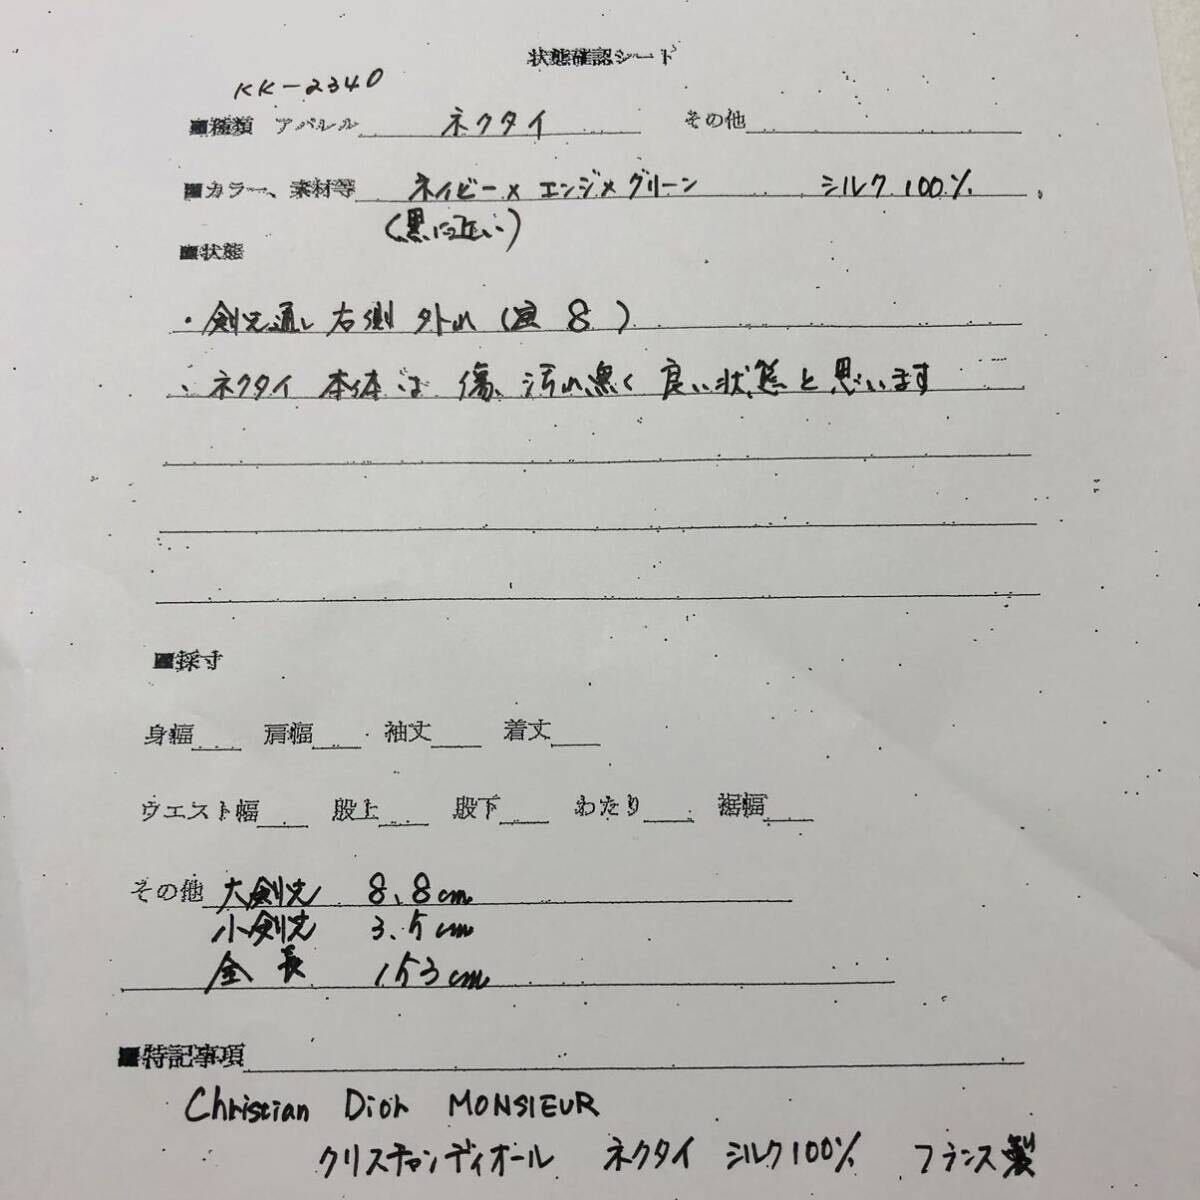 状態確認シート
KK-2340
■種類 アパレル ネクタイ その他
■カラー、素材等 ネイビー×エンジ×グリーン シルク100%
(黒に近い)
■状態
・剣先通し右側外れ(写8)
・ネクタイ本体は傷、汚れ無く良い状態と思います
■採寸
身幅 肩幅 袖丈 着丈
ウエスト幅 股上 股下 わたり 裾幅
その他 大剣先 8.8cm
小剣先 3.5cm
全長 153cm
■特記事項
Christian Dior MONSIEUR
クリスチャンディオール ネクタイ シルク100% フランス製